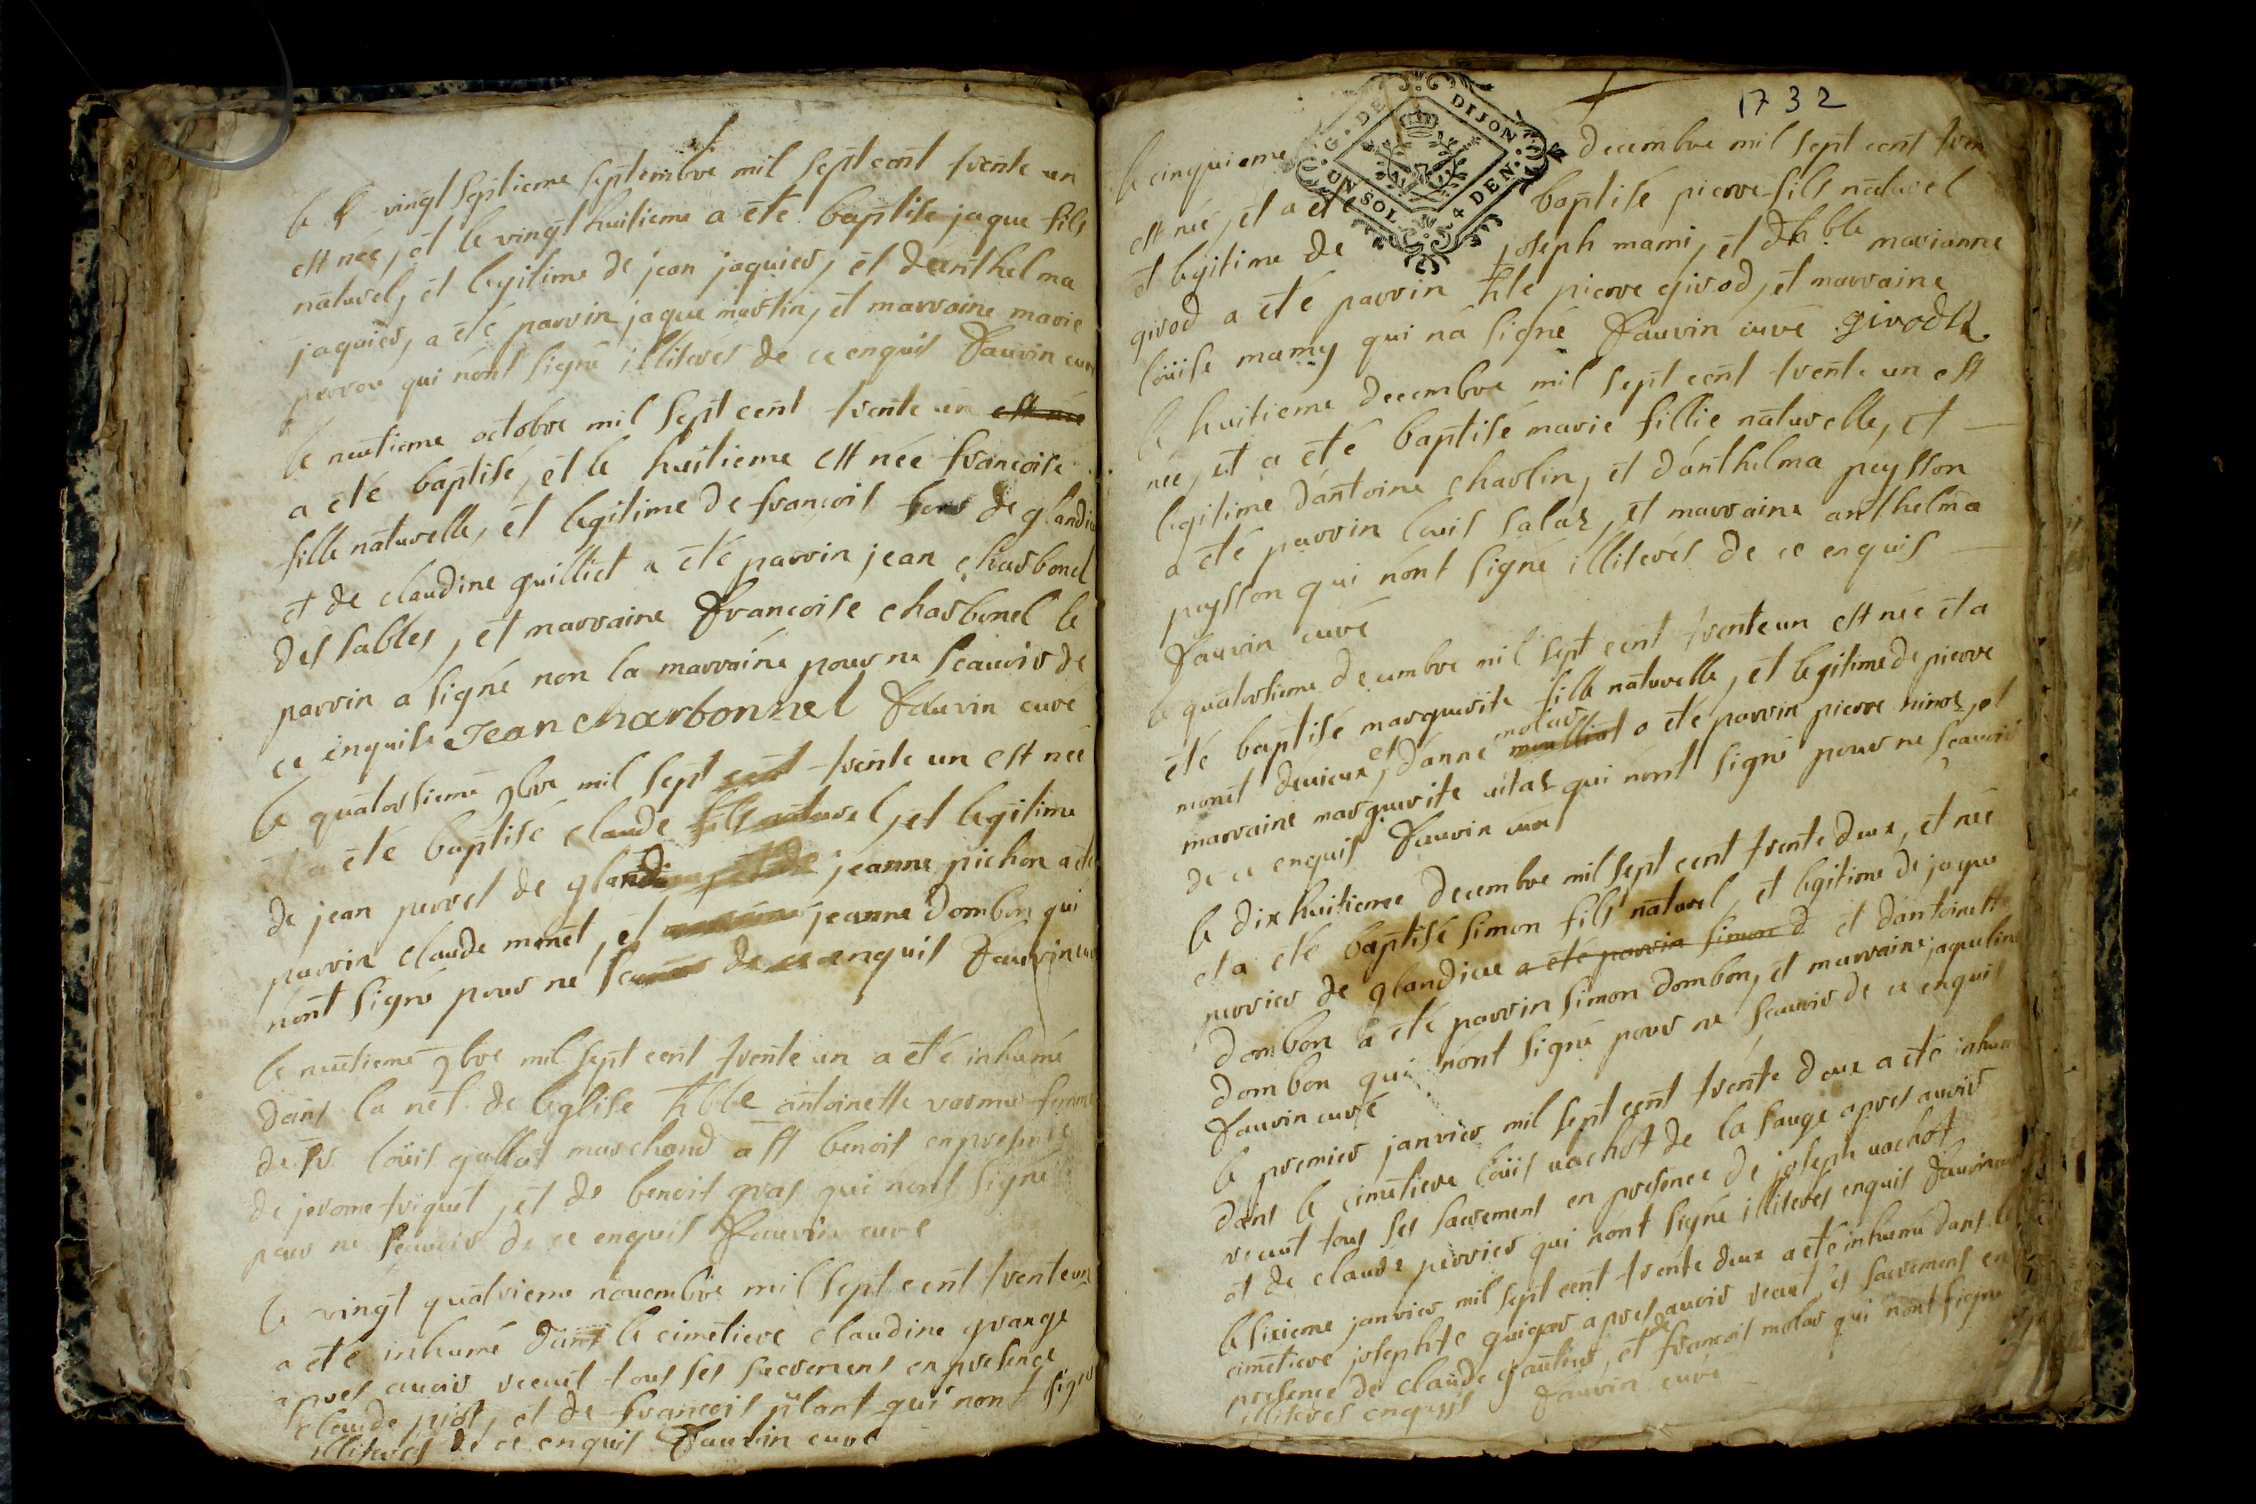 le vingt septieme septembre mil sept cent trente un
est née, et le vingt huitieme a été baptise jaque fils
naturel, et legitime de jean jaquier, et danthelma
jaquier, a été parrin jaque martin, et marraine marie
perror qui nónt signé illiterés de ce enquis Fauvin curé
le neutieme octobre mil sept cent trente un est née
a été baptisé, et le huitieme est née francoise
fille naturelle, et legitime de francois de glandieu
et de claudine guilliet a été parrin jean charbonel
des sables, et marraine Francoise charbonel le
parrin a signé non la marraine pour ne scauoir de
ce enquise Jean charbonnel Fauvin curé
le quatorsieme 9bre mil sept cent trente un est née
et a été baptisé claude fils naturel, et legitime
de jean perret de glandieu, et de jeanne pichon a été
parrin claude monet, et marraine jeanne dombon qui
nónt signé pour ne scauoir de ce enquis Fauvin curé
le neutieme 9bre mil sept cent trente un a été inhumé
dans la nef de leglise hble antoinette femme
de sr loüis gallas marchand a st benoit en presence
de jerome triquet, et de benoit gras qui nont signé
pour ne scauoir de ce enquis Fauvin curé
le vingt quatrieme nouembre mil sept cent trente un
a été inhumé dans le cimetiere claudine grange
apres auoir receut tous ses sacrement en presence
de claude, et de francois qui nont signé
illiterés de ce enquis Fauvin curé
1732
G. DE DIJON
UN SOL 4 DEN.
le cinquieme decembre mil sept cent tren
est née, et a été baptisé pierre fils naturel
et legitime de joseph mami, et dhble marianne
girod a été parrin hle pierre girod, et marraine
loüise mamy qui ná signé Fauvin curé girod
le huitieme decembre mil sept cent trente un est
née, et a été baptisé marie fillie naturelle, et
legitime dántoine charlin, et dánthelma peysson
a été parrin louis salaz, et marraine anthelma
peysson qui nónt signé illiterés de ce enquis
Fauvin curé
le quatorsieme decembre mil sept cent trente un est née et a
été baptisé marguerite fille naturelle, et legitime de pierre
monet deuieux, et dánne molar a été parrin pierre, et
marraine marguerite uitaz qui nónt signé pour ne scauoir
de ce enquis Fauvin curé
le dixhuitieme decembre mil sept cent trente deux, et née
et a été baptisé simon fils naturel, et legitime de jaque
perrier de glandieu a été parrin simon d et dantoinette
dombon a été parrin simon dombon, et marraine jaqueline
dombon qui nónt signé pour ne scauoir de ce enquis
Fauvin curé
le premier janvier mil sept cent trente deux a été inhumé
dans le cimetiere loüis uachot de la sauge apres auoir
receut tous ses sacrement en presence de joseph uachot
et de claude perrier qui nont signé illiterés enquis Fauvin curé
le sixieme janvier mil sept cent trente deux a été inhumé dans le
cimetiere josephte apres auoir receut ses sacrement en
presence de claude gautier, et de francois molar qui nont signé
illiterés enquis Fauvin curé